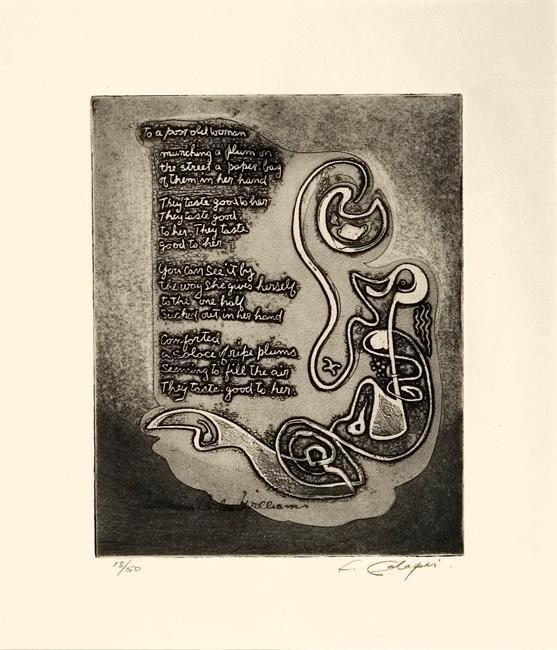 To a poor old woman
munching a plum on
the street a paper bag
of them in her hand
They taste good to her
They taste good
to her. They taste
good to her
You can see it by
the way she gives herself
to the one half
sucked out in her hand
Comforted
a solace of ripe plums
seeming to fill the air
They taste good to her.
Williams
15/50